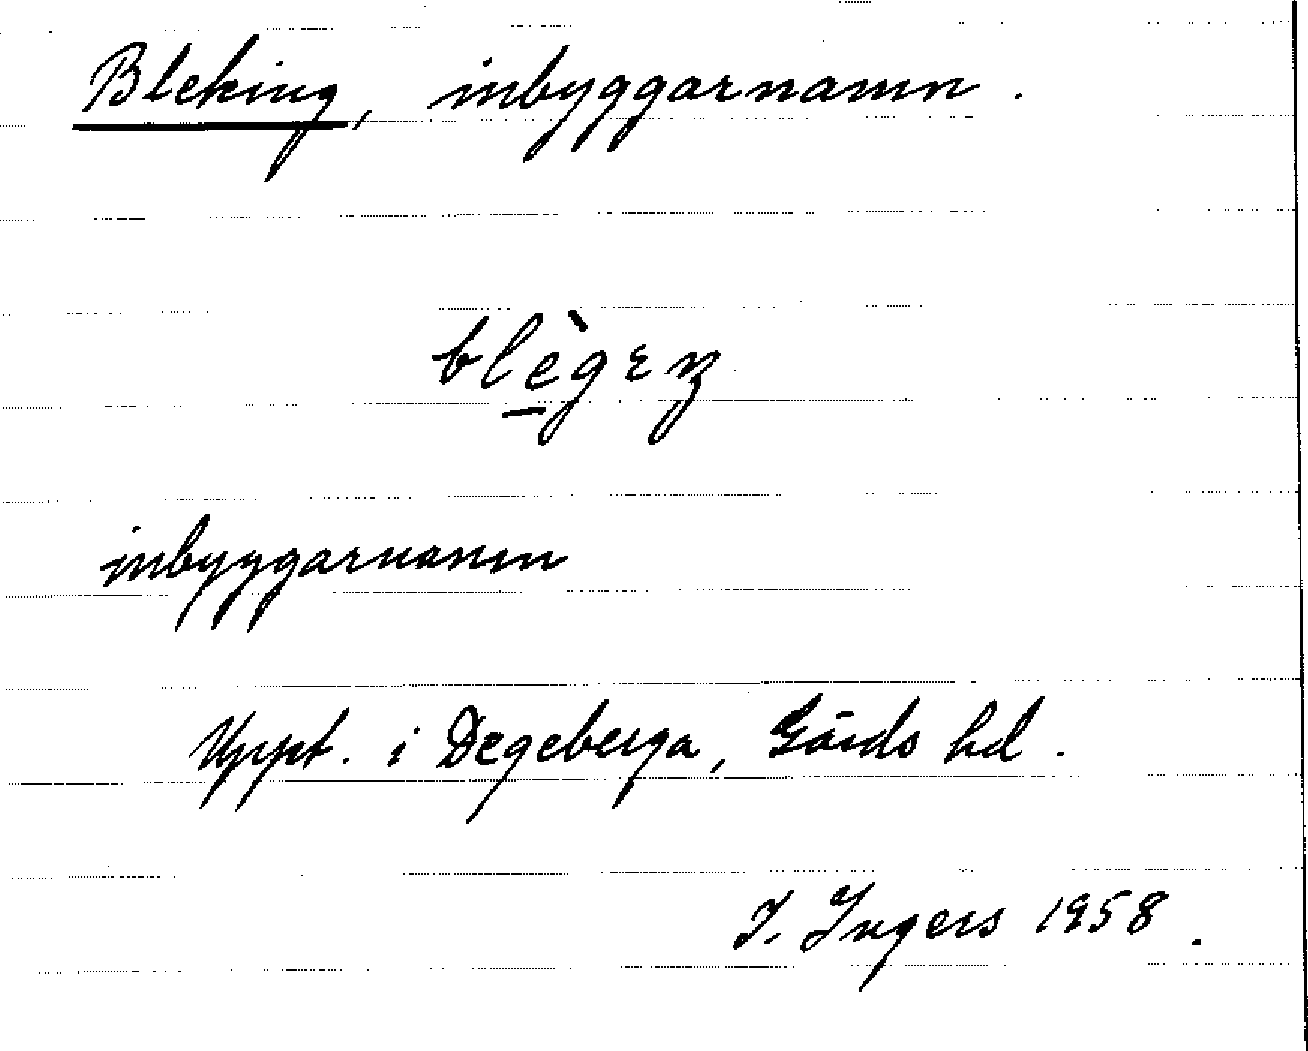 Bleking, inbyggarnamn.
blègɛŋ
inbyggarnamn
Uppt. i Degeberga, Gärds hd.
I. Ingers 1958.